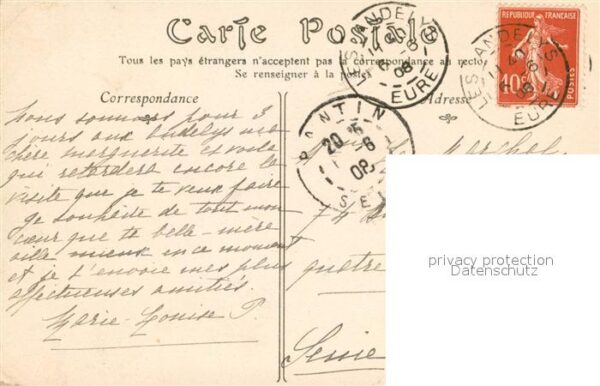 Carte Postale
Tous les pays étrangers n'acceptent pas la correspondance au recto
Se renseigner à la poste
Correspondance
Adresse
Nous sommes pour 3
jours aux Andelys ma
chère marguerite et voila
qui retardera encore la
visite que je te veux faire
je souhaite de tout mon
cœur que ta belle-mère
aille mieux en ce moment
et je t'envoie mes plus
affectueuses amitiés.
Marie-Louise P.
Marchal
74
quatre
Seine
LES ANDELYS
EURE
08
LES ANDELYS
EURE
PANTIN
20
08
REPUBLIQUE FRANÇAISE
10c
POSTES
privacy protection
Datenschutz